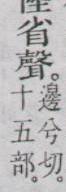 陛省聲。
邊兮切。
十五部。